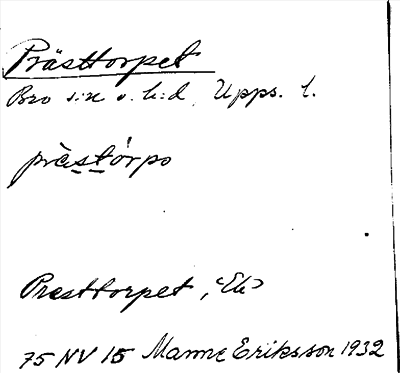 Prästtorpet
Bro s:n o. h:d, Upps. l.
prὲstórpo
Presttorpet, "Ek"
75 NV 15 Manne Eriksson 1932